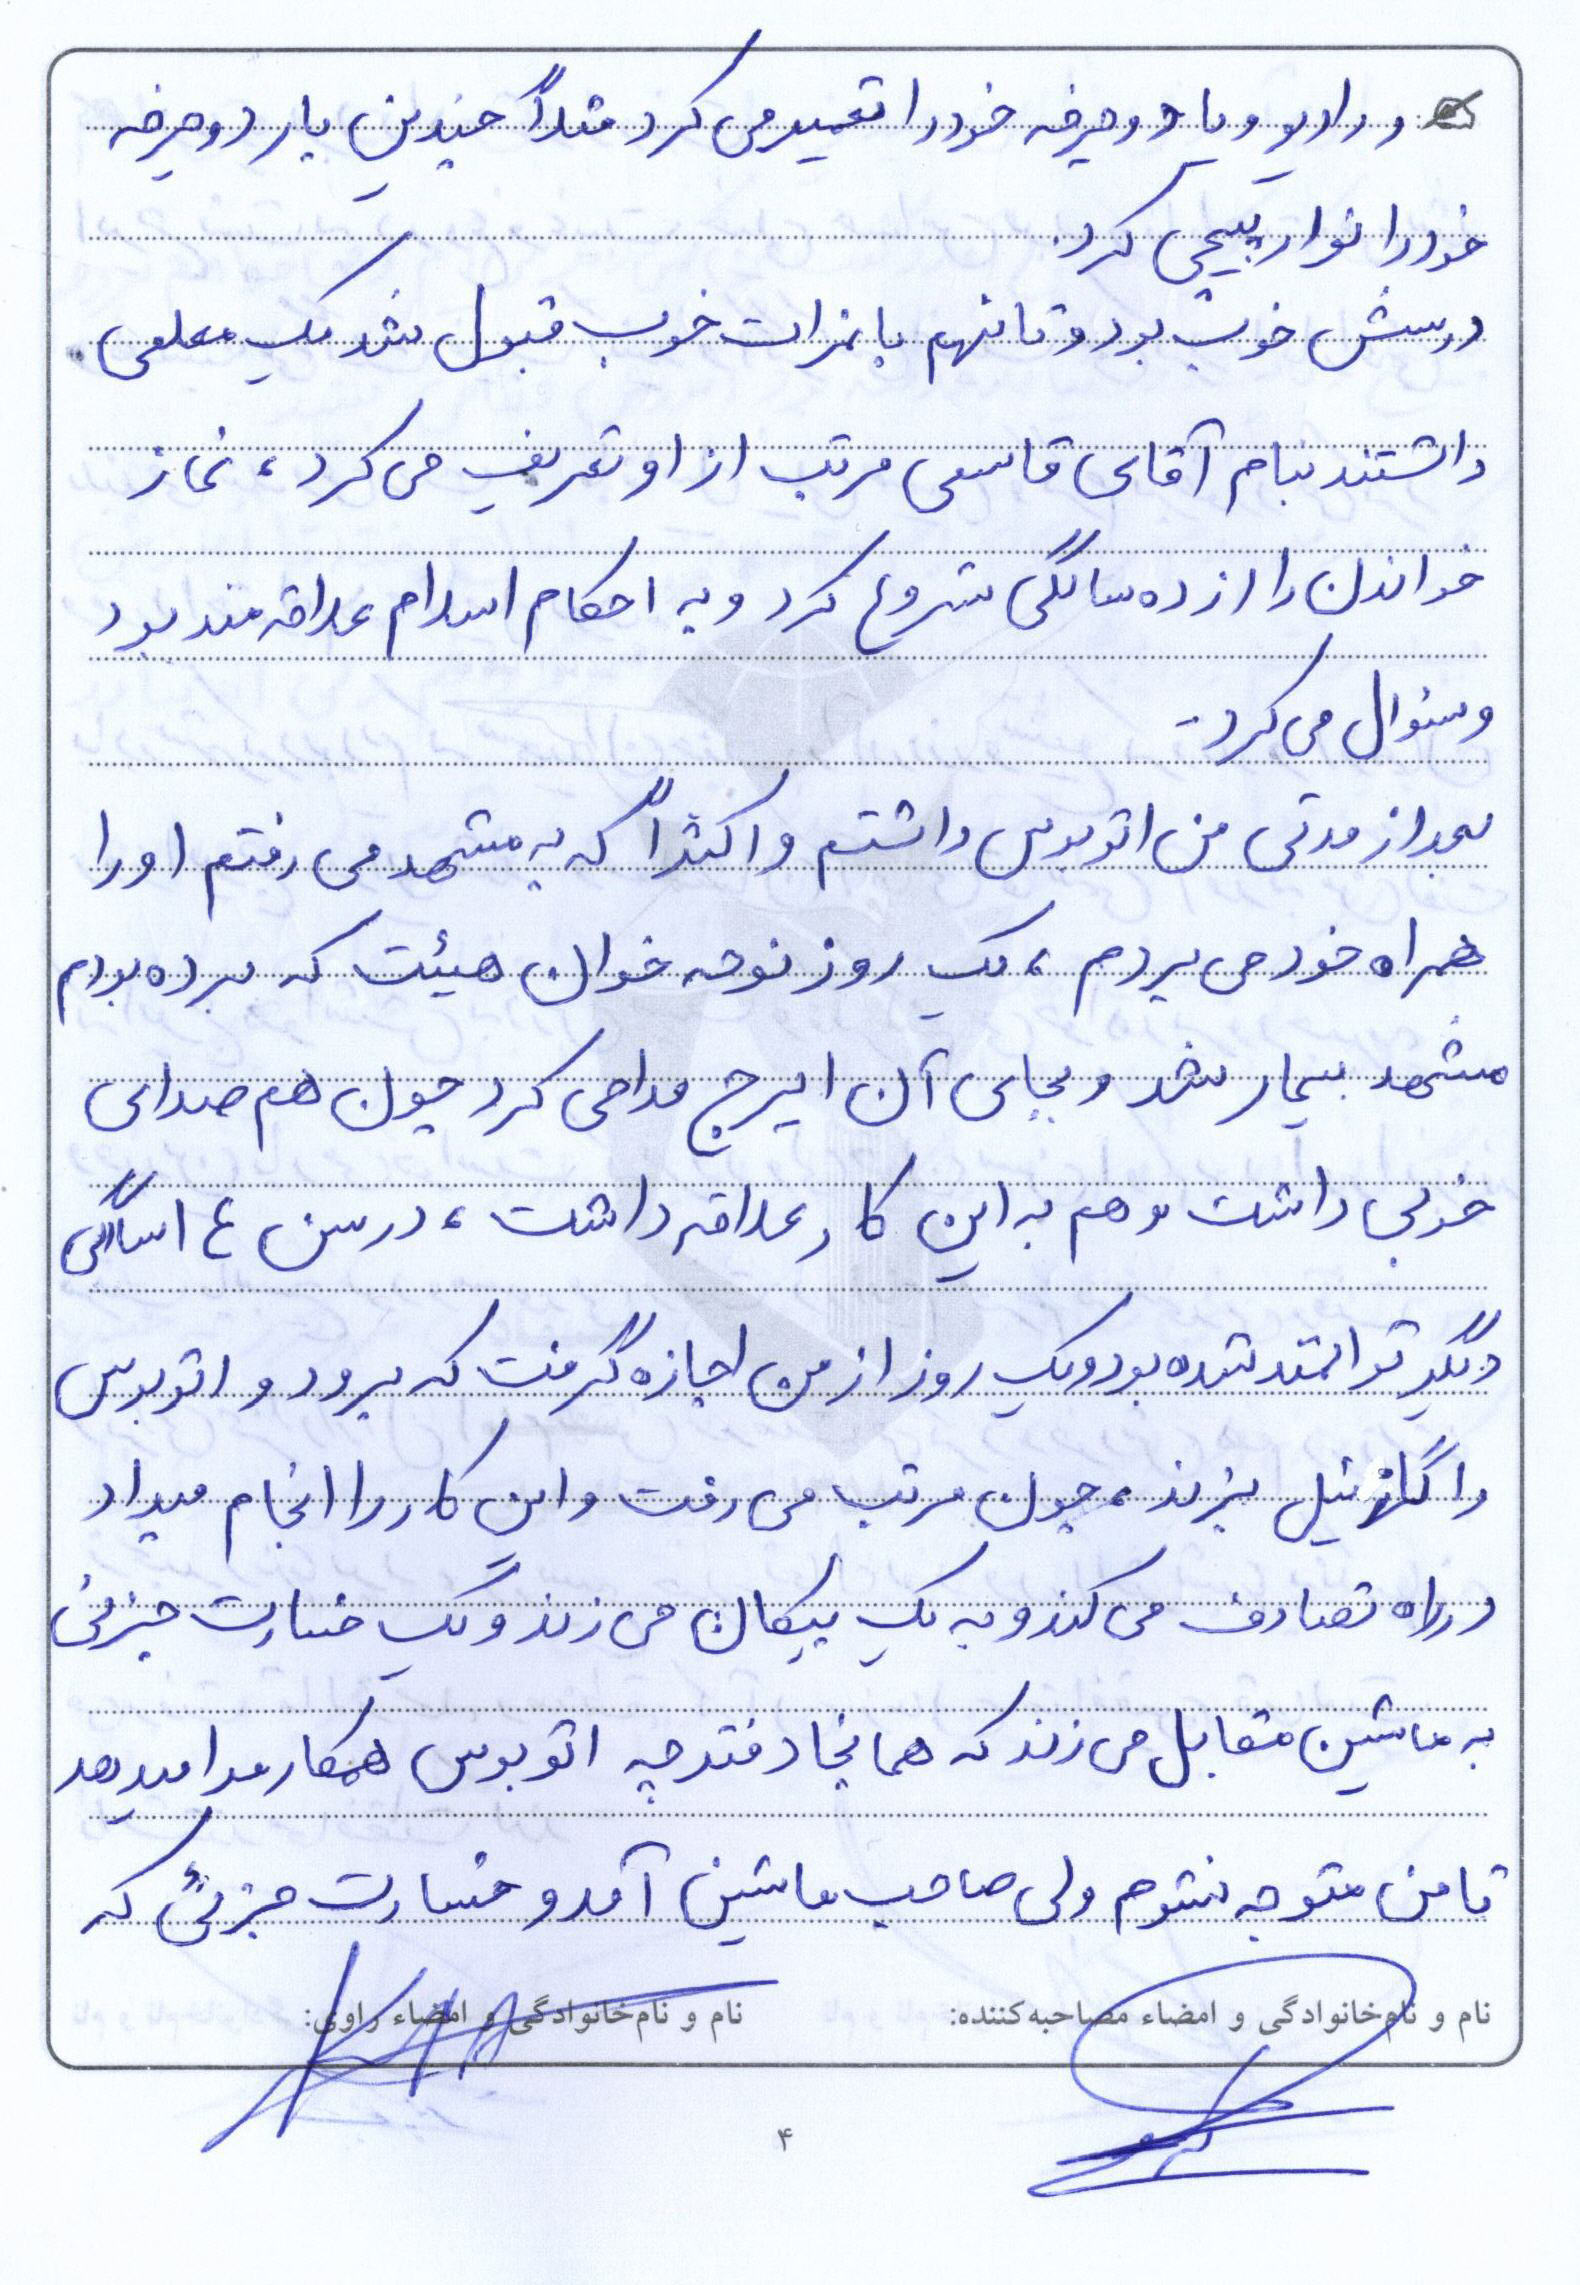 و رادیو و یا دوچرخه خود را تعمیر می کرد مثلاً چندین بار دوچرخه
خود را نوار پیچی کرد.
درسش خوب بود و تا نهم با نمرات خوب قبول شد یک معلمی
داشتند بنام آقای قاسمی مرتب از او تعریف می کرد، نماز
خواندن را از ده سالگی شروع کرد و به احکام اسلام علاقه مند بود
و سئوال می کرد.
بعد از مدتی من اتوبوس داشتم و اکثراً که به مشهد می رفتم او را
همراه خود می بردم، یک روز نوحه خوان هیئت که برده بودم
مشهد بیمار شد و بجای آن ایرج مداحی کرد چون هم صدای
خوبی داشت و هم به این کار علاقه داشت، در سن ۱۴ سالگی
دیگر توانمند شده بود و یک روز از من اجازه گرفت که برود و اتوبوس
را گازئیل بزند، چون مرتب می رفت و این کار را انجام میداد
در راه تصادف می کند و به یک پیکان می زند و یک خسارت جزئی
به ماشین مقابل می زند که همانجا دفترچه اتوبوس همکار مرا میدهد
تا من متوجه نشوم ولی صاحب ماشین آمد و خسارت جزئی که
نام و نام‌خانوادگی و امضاء مصاحبه‌کننده:
نام و نام‌خانوادگی و امضاء راوی:
۴